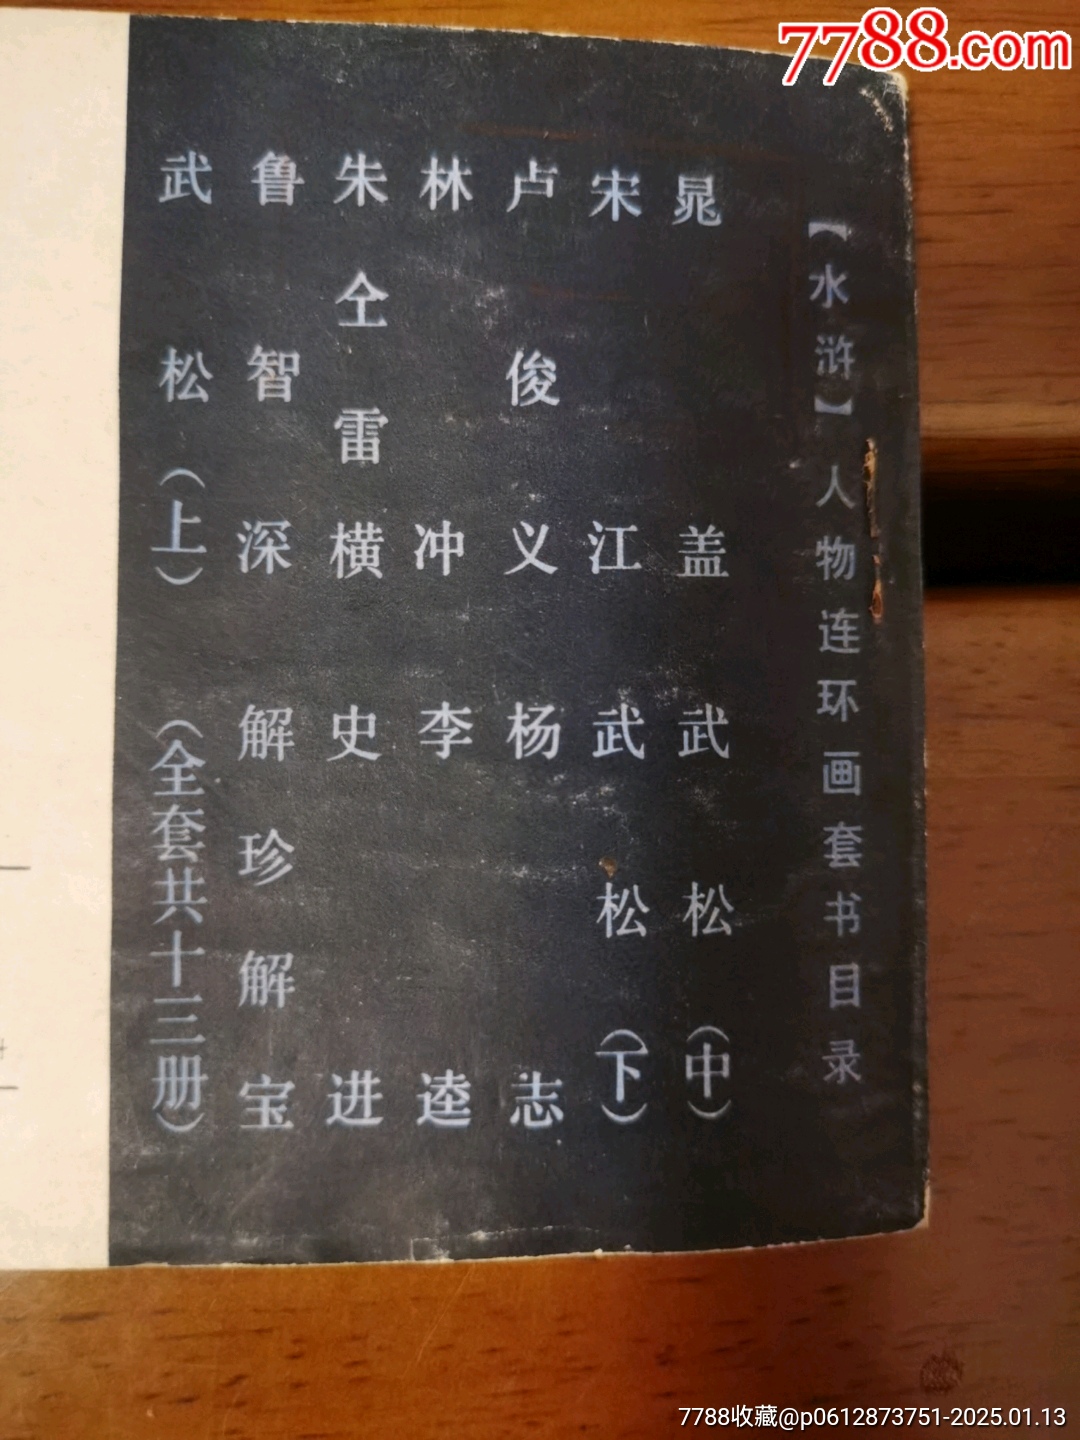 7788.com
【水浒】人物连环画套书目录
晁盖 武松(中)
宋江 武松(下)
卢俊义 杨志
林冲 李逵
朱仝雷横 史进
鲁智深 解珍解宝
武松(上) (全套共十三册)
7788收藏@p0612873751-2025.01.13